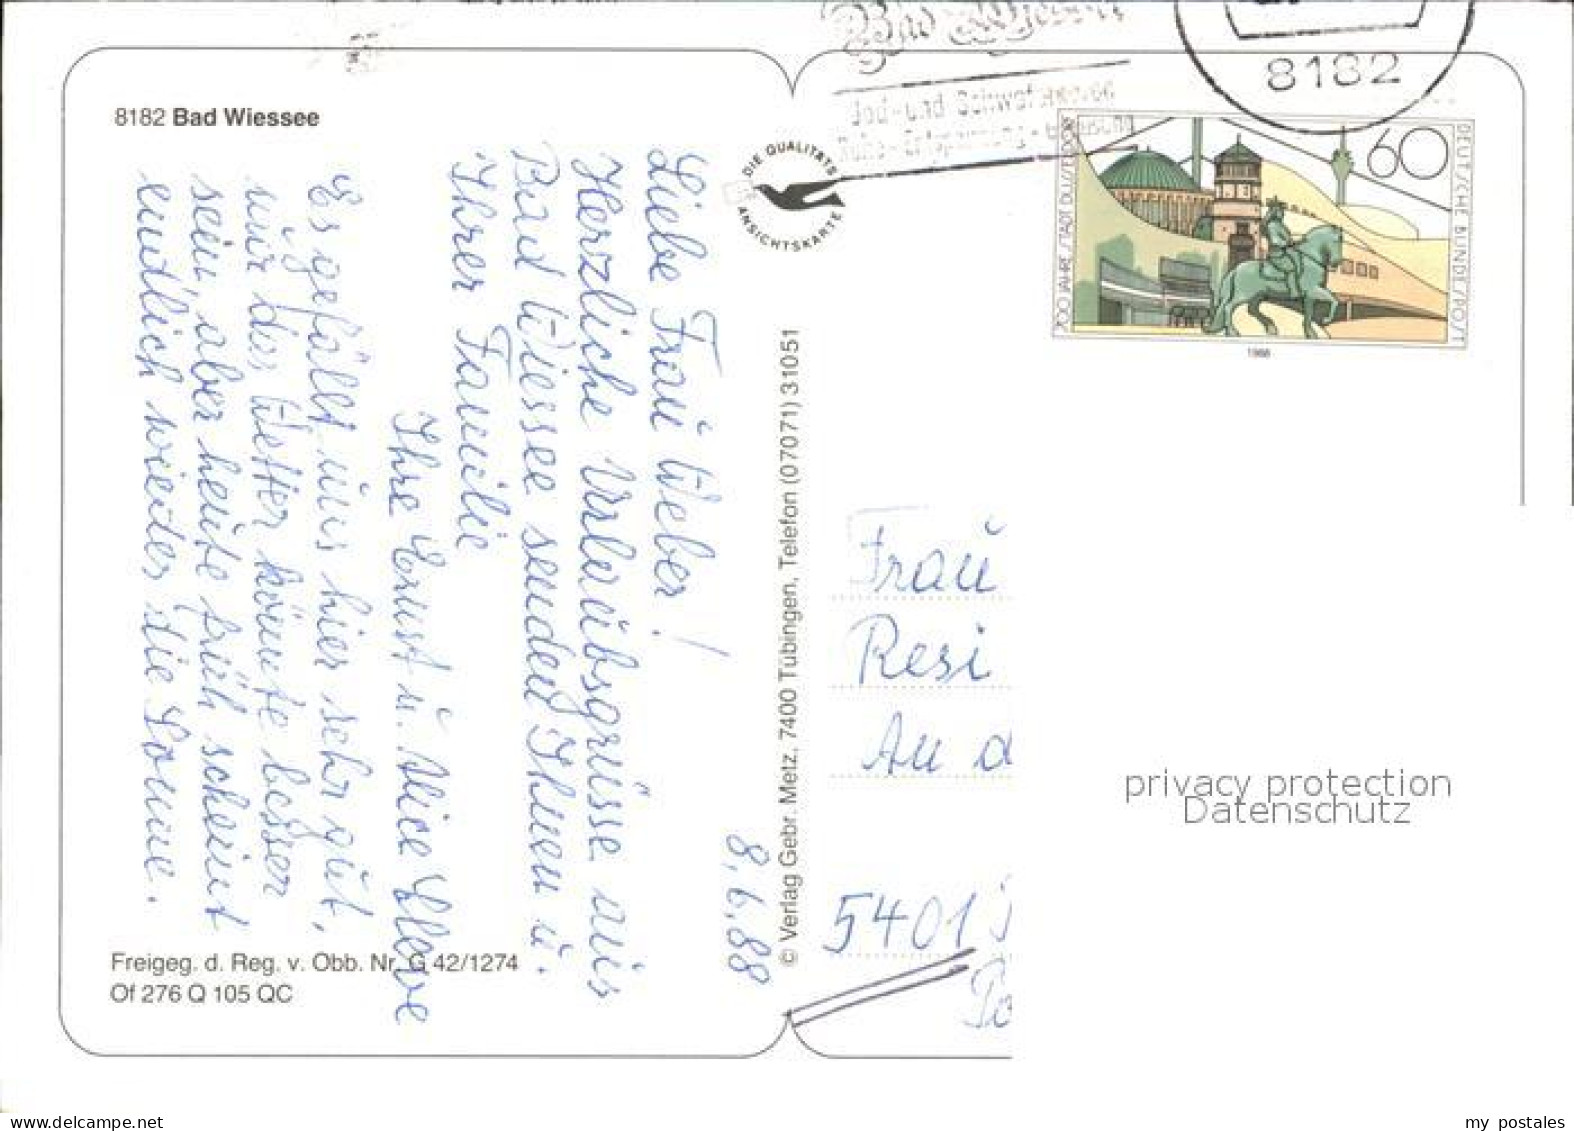 8182 Bad Wiessee
8.6.88
Liebe Frau Weber!
Herzliche Urlaubsgrüsse aus
Bad Wiessee senden Ihnen u.
Ihrer Familie
Ihre Ernst u. Alice
Es gefällt uns hier sehr gut,
nur das Wetter könnte besser
sein, aber heute früh scheint
endlich wieder die Sonne.
Freigeg. d. Reg. v. Obb. Nr. G 42/1274
Of 276 Q 105 QC
DIE QUALITÄTS
ANSICHTSKARTE
© Verlag Gebr. Metz, 7400 Tübingen, Telefon (07071) 31051
Bad Wiessee
Jod- und Schwefel
8182
60
DEUTSCHE BUNDESPOST
700 JAHRE STADT DÜSSELDORF
1988
Frau
Resi
An d
5401
privacy protection
Datenschutz
www.delcampe.net
my postales